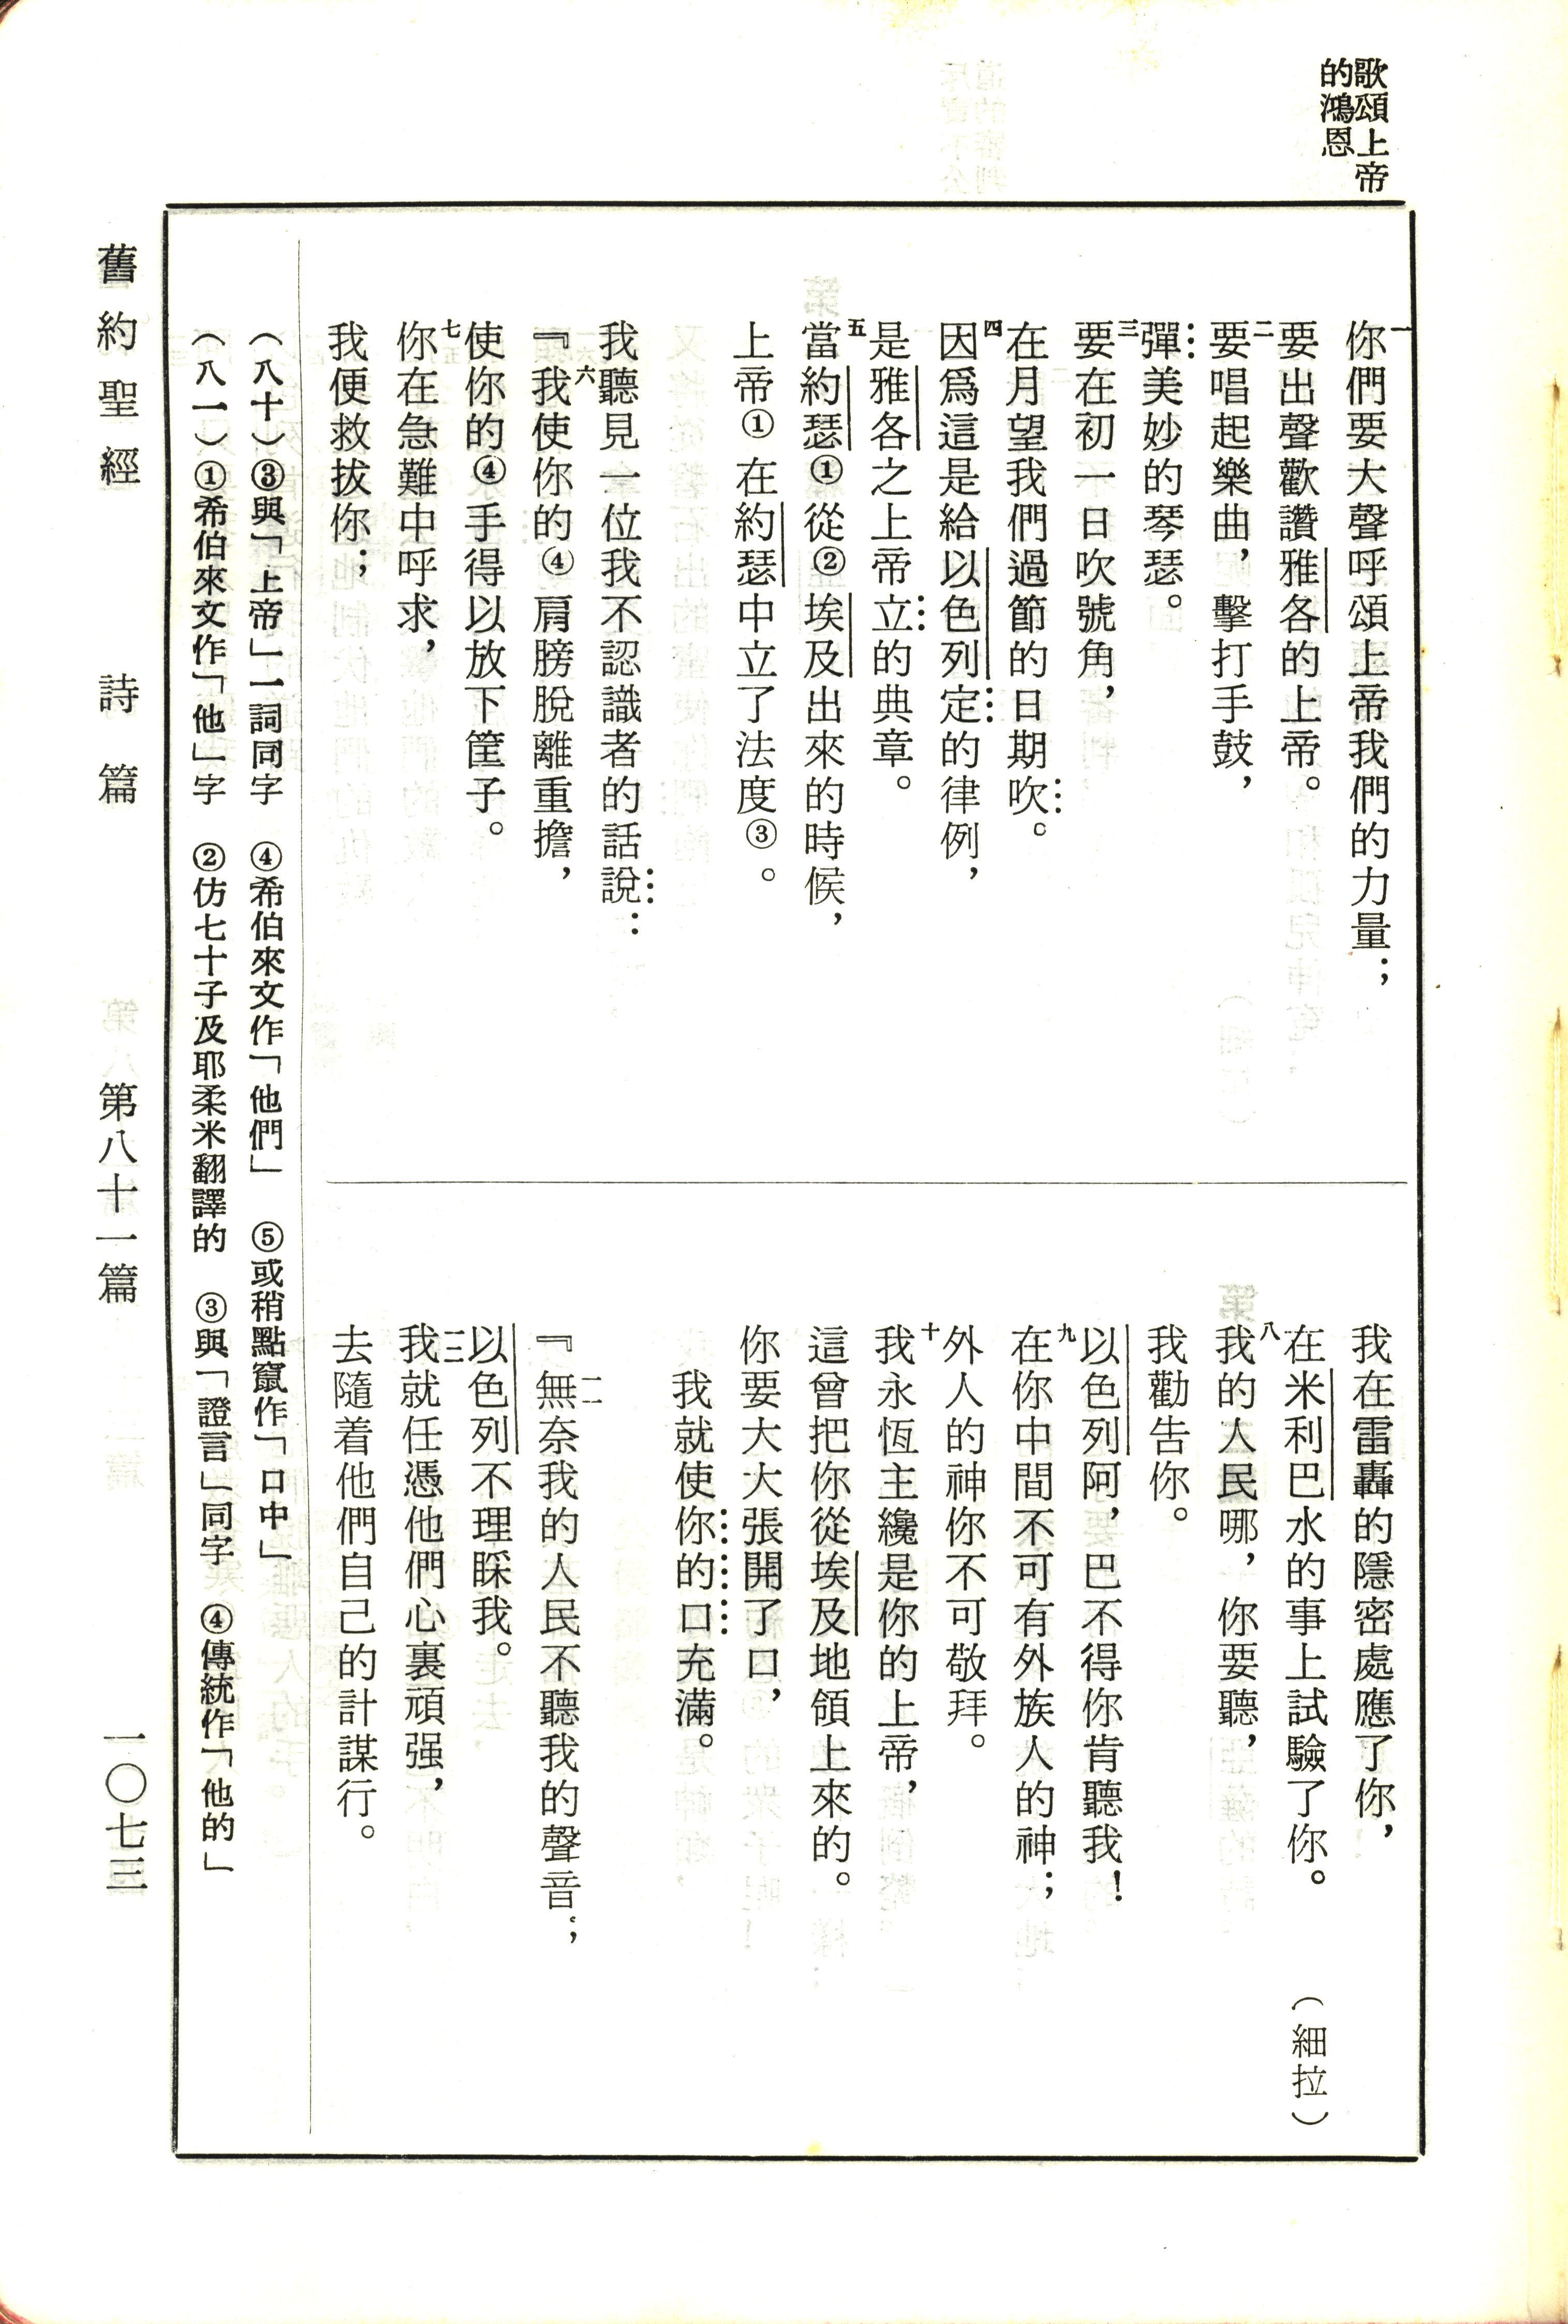 歌頌上帝
的鴻恩
一你們要大聲呼頌上帝我們的力量；
要出聲歡讚雅各的上帝。
二要唱起樂曲，擊打手鼓，
彈美妙的琴瑟。
三要在初一日吹號角，
在月望我們過節的日期吹。
四因爲這是給以色列定的律例，
是雅各之上帝立的典章。
五當約瑟①從②埃及出來的時候，
上帝①在約瑟中立了法度③。
我聽見一位我不認識者的話說：
六『我使你的④肩膀脫離重擔，
使你的④手得以放下筐子。
七你在急難中呼求，
我便救拔你；
我在雷轟的隱密處應了你，
在米利巴水的事上試驗了你。（細拉）
八我的人民哪，你要聽，
我勸告你。
以色列阿，巴不得你肯聽我！
九在你中間不可有外族人的神；
外人的神你不可敬拜。
十我永恆主纔是你的上帝，
這曾把你從埃及地領上來的。
你要大大張開了口，
我就使你的口充滿。
一一『無奈我的人民不聽我的聲音；
以色列不理睬我。
一二我就任憑他們心裏頑强，
去隨着他們自己的計謀行。
（八十）③與「上帝」一詞同字　④希伯來文作「他們」　⑤或稍點竄作「口中」
（八一）①希伯來文作「他」字　②仿七十子及耶柔米翻譯的　③與「證言」同字　④傳統作「他的」
舊約聖經　詩篇　第八十一篇　一〇七三